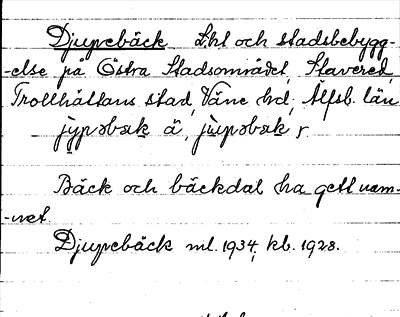 Djupebäck Lht och stadsbebygg-
-else på Östra Stadsområdet, Stavered,
Trollhättans stad, Väne hd, Älfsb. län
jypəbæk ä, jùpəbæk r
Bäck och bäckdal ha gett nam-
-net.
Djupebäck ml. 1934, kb. 1928.